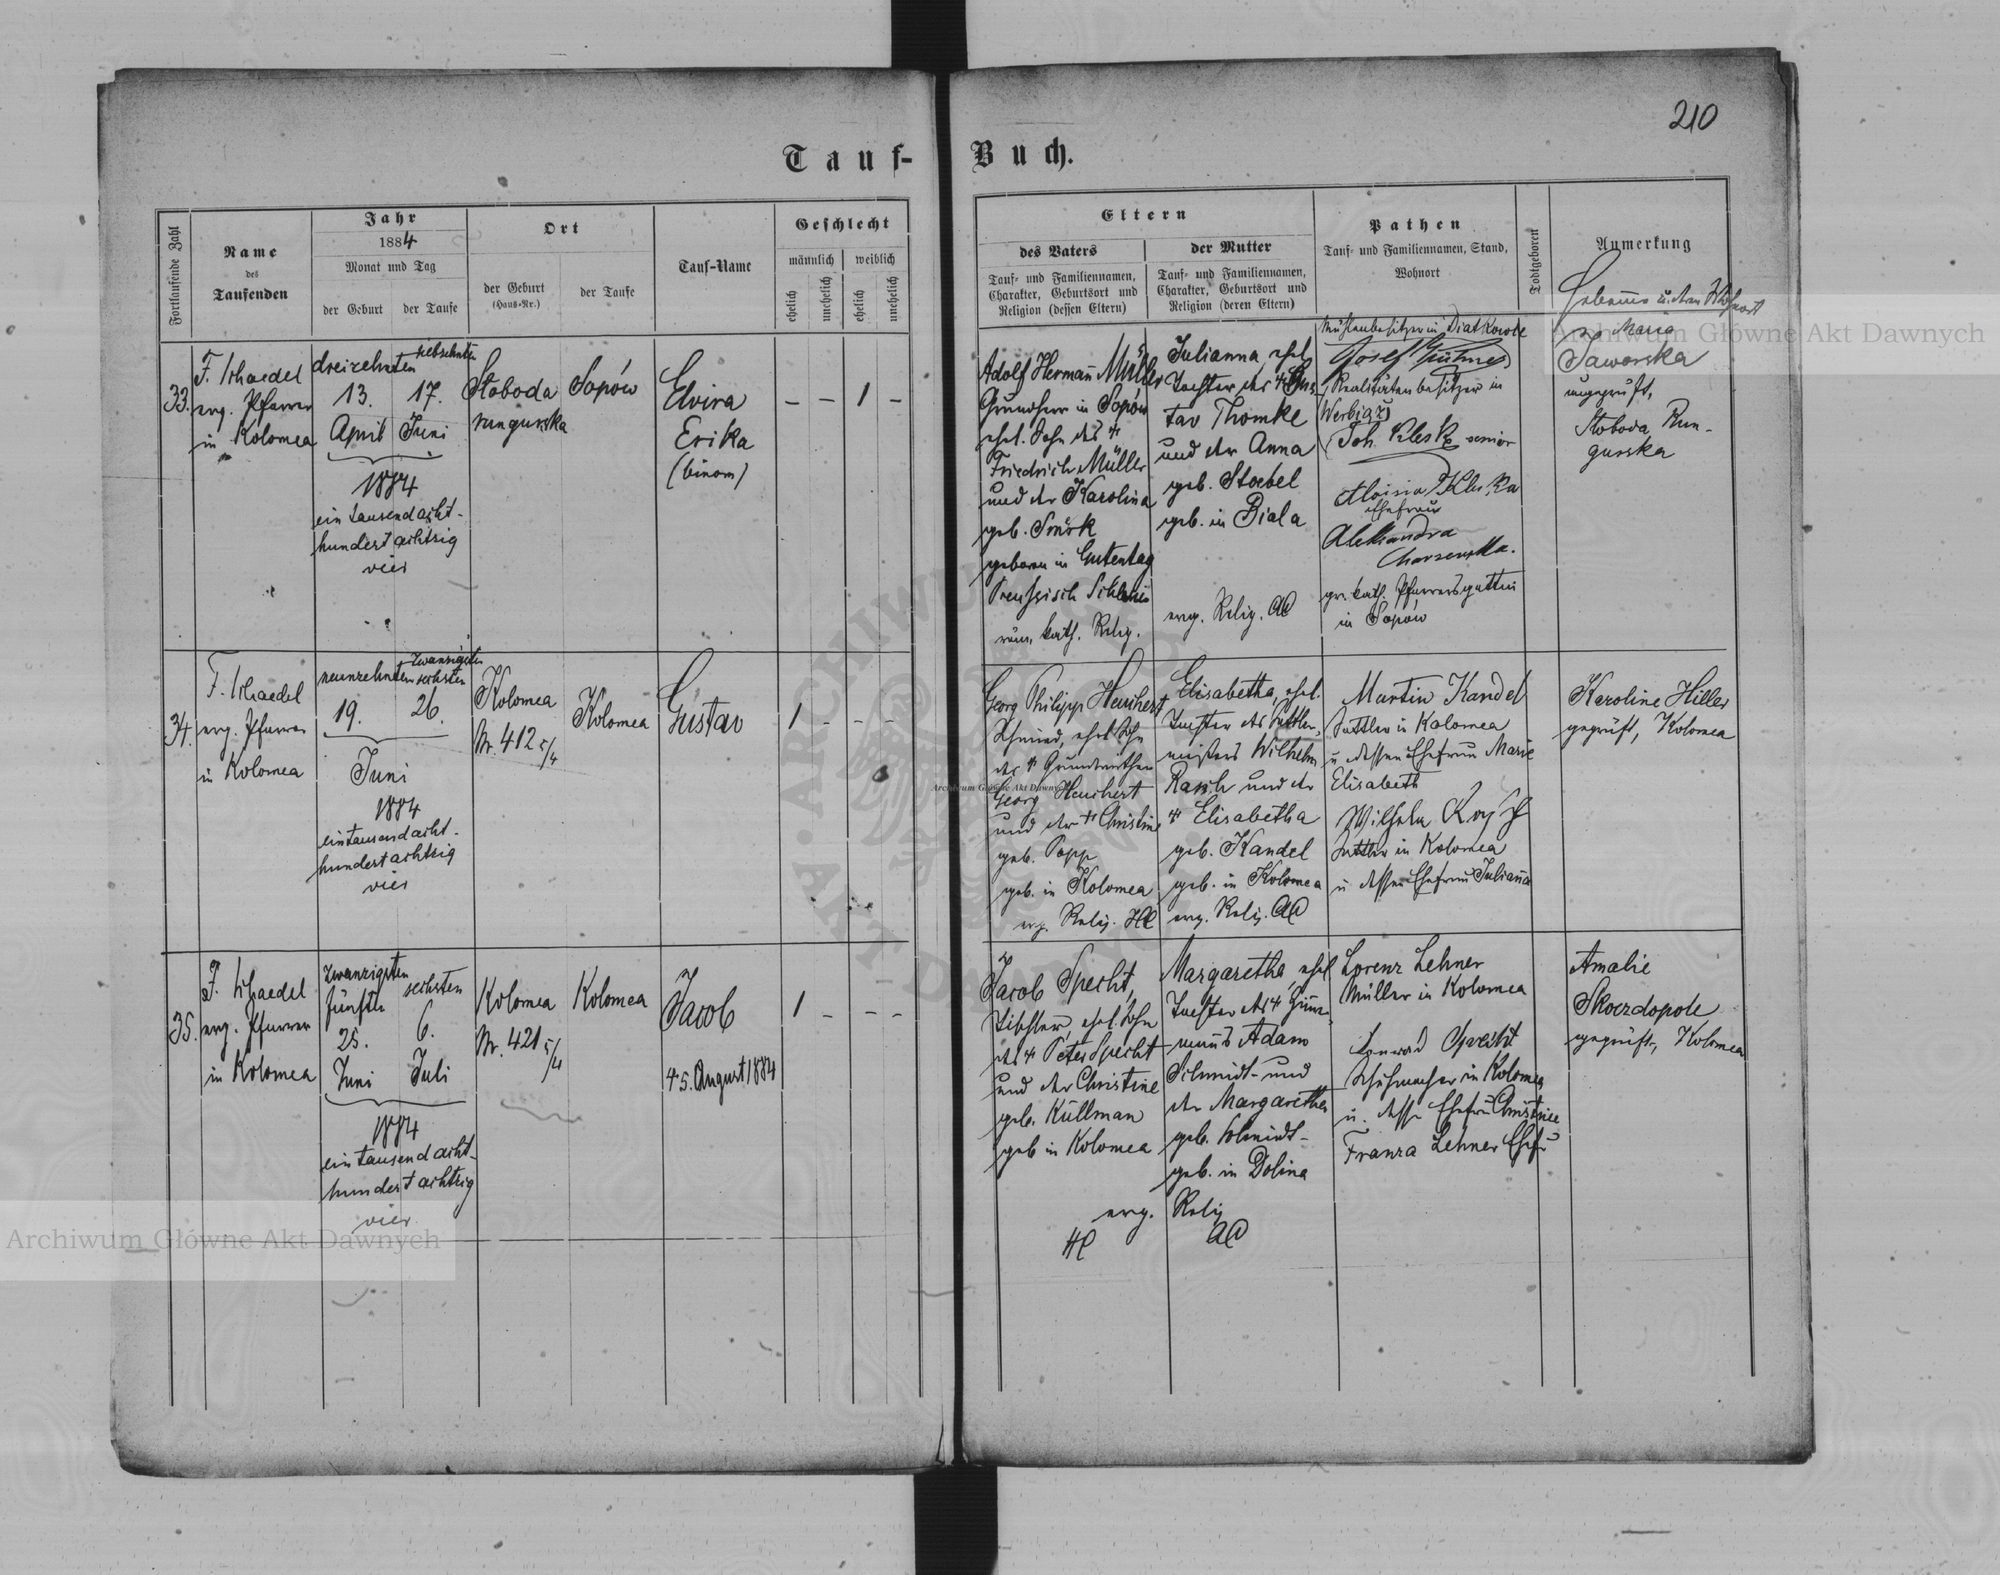 210
Tauf-Buch.
Fortlaufende Zahl
Name
des
Taufenden
Jahr
1884
Monat und Tag
der Geburt
der Taufe
Ort
der Geburt
(Haus-Nr.)
der Taufe
Tauf-Name
Geschlecht
männlich
weiblich
ehelich
unehelich
ehelich
unehelich
Eltern
des Vaters
Tauf- und Familiennamen,
Charakter, Geburtsort und
Religion (dessen Eltern)
der Mutter
Tauf- und Familiennamen,
Charakter, Geburtsort und
Religion (deren Eltern)
Pathen
Tauf- und Familiennamen, Stand,
Wohnort
Todtgeboren
Anmerkung
Hebamme u. deren Wohnort
33.
F. Schaedel
evg. Pfarrer
in Kolomea
dreizehnten
13.
April
siebzehnten
17.
Juni
1884
ein tausend acht-
hundert achtzig
vier
Sloboda
rungurska
Sopów
Elvira
Erika
(binom)
– – 1 –
Adolf Herman Müller
Grundherr in Sopów
ehel. Sohn des †
Friedrich Müller
und der Karolina
geb.
geboren in Gutentag
Preussisch Schlesien
röm. kath. Relig.
Julianna, ehel.
Tochter des † Gus
tav Thomke
und der Anna
geb. Stoebel
geb. in Biala
evg. Relig. AC
Mühlenbesitzer in Diatkowce
Josef
Realitätenbesitzer in
Werbiąż
Joh. Kleski senior
Aloisia Kleska
Ehefrau
Aleksandra
gr. kath. Pfarrersgattin
in Sopów
Maria
Jaworska
ungeprüft,
Sloboda Run-
gurska
34.
F. Schaedel
evg. Pfarrer
in Kolomea
neunzehnten
19.
zwanzigsten
sechsten
26.
Juni
1884
ein tausend acht-
hundert achtzig
vier
Kolomea
Nr. 412 5/4
Kolomea
Gustav
1 – – –
Georg Philipp Heuchert
Schmied, ehel. Sohn
des † Grundwirthen
Georg Heuchert
und der † Christine
geb. Popp
geb. in Kolomea
evg. Relig. HC
Elisabetha, ehel.
Tochter des Sattler-
meisters Wilhelm
Rasch und der
† Elisabetha
geb. Kandel
geb. in Kolomea
evg. Relig. AC
Martin Kandel
Sattler in Kolomea
u. dessen Ehefrau Marie
Elisabeth
Wilhelm Rasch
Sattler in Kolomea
u. dessen Ehefrau Juliana
Karoline Hiller
geprüft, Kolomea
35.
F. Schaedel
evg. Pfarrer
in Kolomea
zwanzigsten
fünften
25.
Juni
sechsten
6.
Juli
1884
ein tausend acht-
hundert achtzig
vier
Kolomea
Nr. 421 5/4
Kolomea
Jacob
† 5. August 1884
1 – – –
Jacob Specht,
Tischler, ehel. Sohn
des † Peter Specht
und der Christine
geb. Küllman
geb in Kolomea
evg.
HC
Margaretha, ehel
Tochter des † Zimmer-
manns Adam
Schmidt und
der Margaretha
geb. Schmidt
geb. in Dolina
Relig
AC
Lorenz Lehner
Müller in Kolomea
Konrad Specht
Schuhmacher in Kolomea
u. dessen Ehefrau Christine
Franza Lehner Ehefr
Amalie
Skoczdopole
geprüft, Kolomea
Archiwum Główne Akt Dawnych
Archiwum Główne Akt Dawnych
Archiwum Główne Akt Dawnych